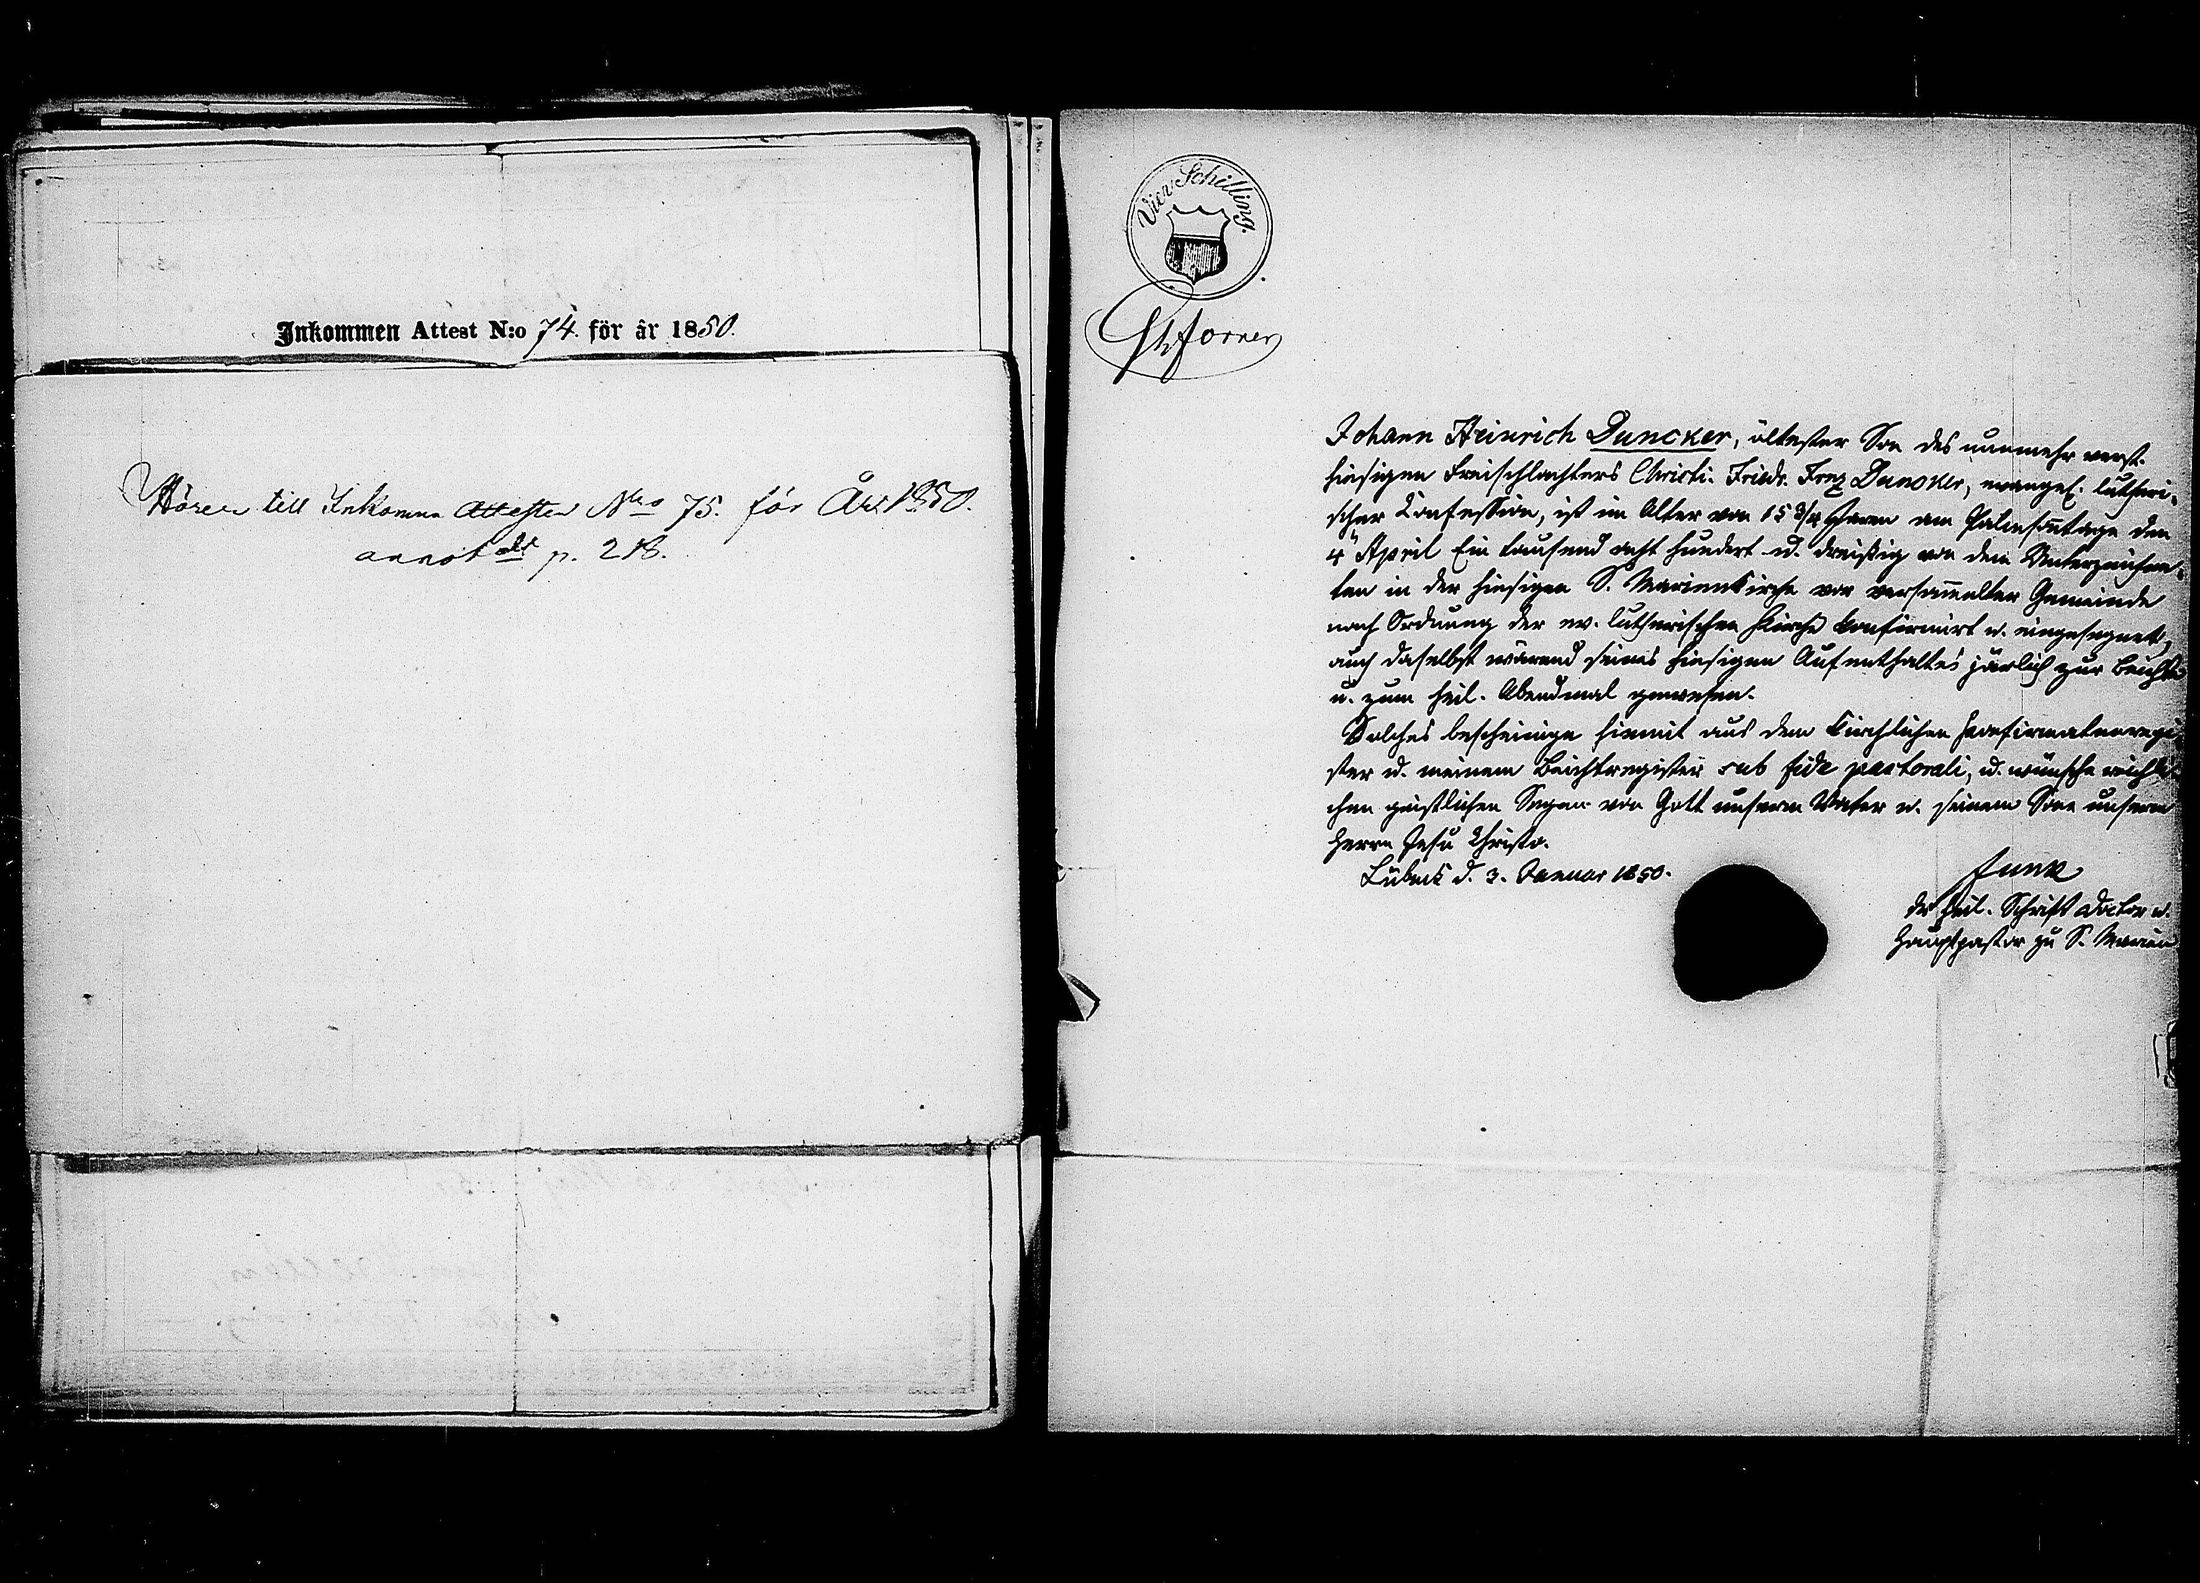 Inkommen Attest N:o 74. för år 1850.
Hörer till Inkomna Attesten Nro 75. för År 1850.
annot p. 218.
Vier Schilling.
Johann Heinrich Duncker, ältester Son des nunmehr verst.
hiesigen Freischlachters Christi. Friedr. Franz Duncker, evangel. lutheri-
scher Confession, ist im Alter von 15 3/4 Jaren am Palmsontage den
4n April Ein tausend acht hundert u. dreißig von dem Unterzeichne-
ten in der hiesigen S. Marienkirche vor versammelter Gemeinde
nach Ordnung der ev. lutherischen Kirche konfirmirt u. eingesegnet,
auch daselbst wärend seines hiesigen Aufenthaltes järlich zur Beichte
u. zum heil. Abendmal gewesen.
Solches bescheinige hiemit aus dem kirchlichen Konfirmatenregi-
ster u. meinem Beichtregister sub fide pastorali, u. wünsche reichli-
chen geistlichen Segen von Gott unserm Vater u. seinem Sone unserm
Herrn Jesu Christo.
Lübeck d. 3. Januar 1850.
Funk
der heil. Schrift Doctor u.
Hauptpastor zu S. Marien